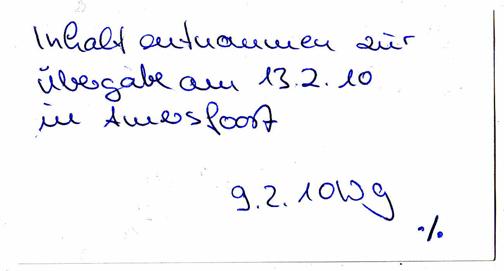 Inhalt entnommen zur
Übergabe am 13.2.10
in Amersfoort
9.2.10 Wg
./.